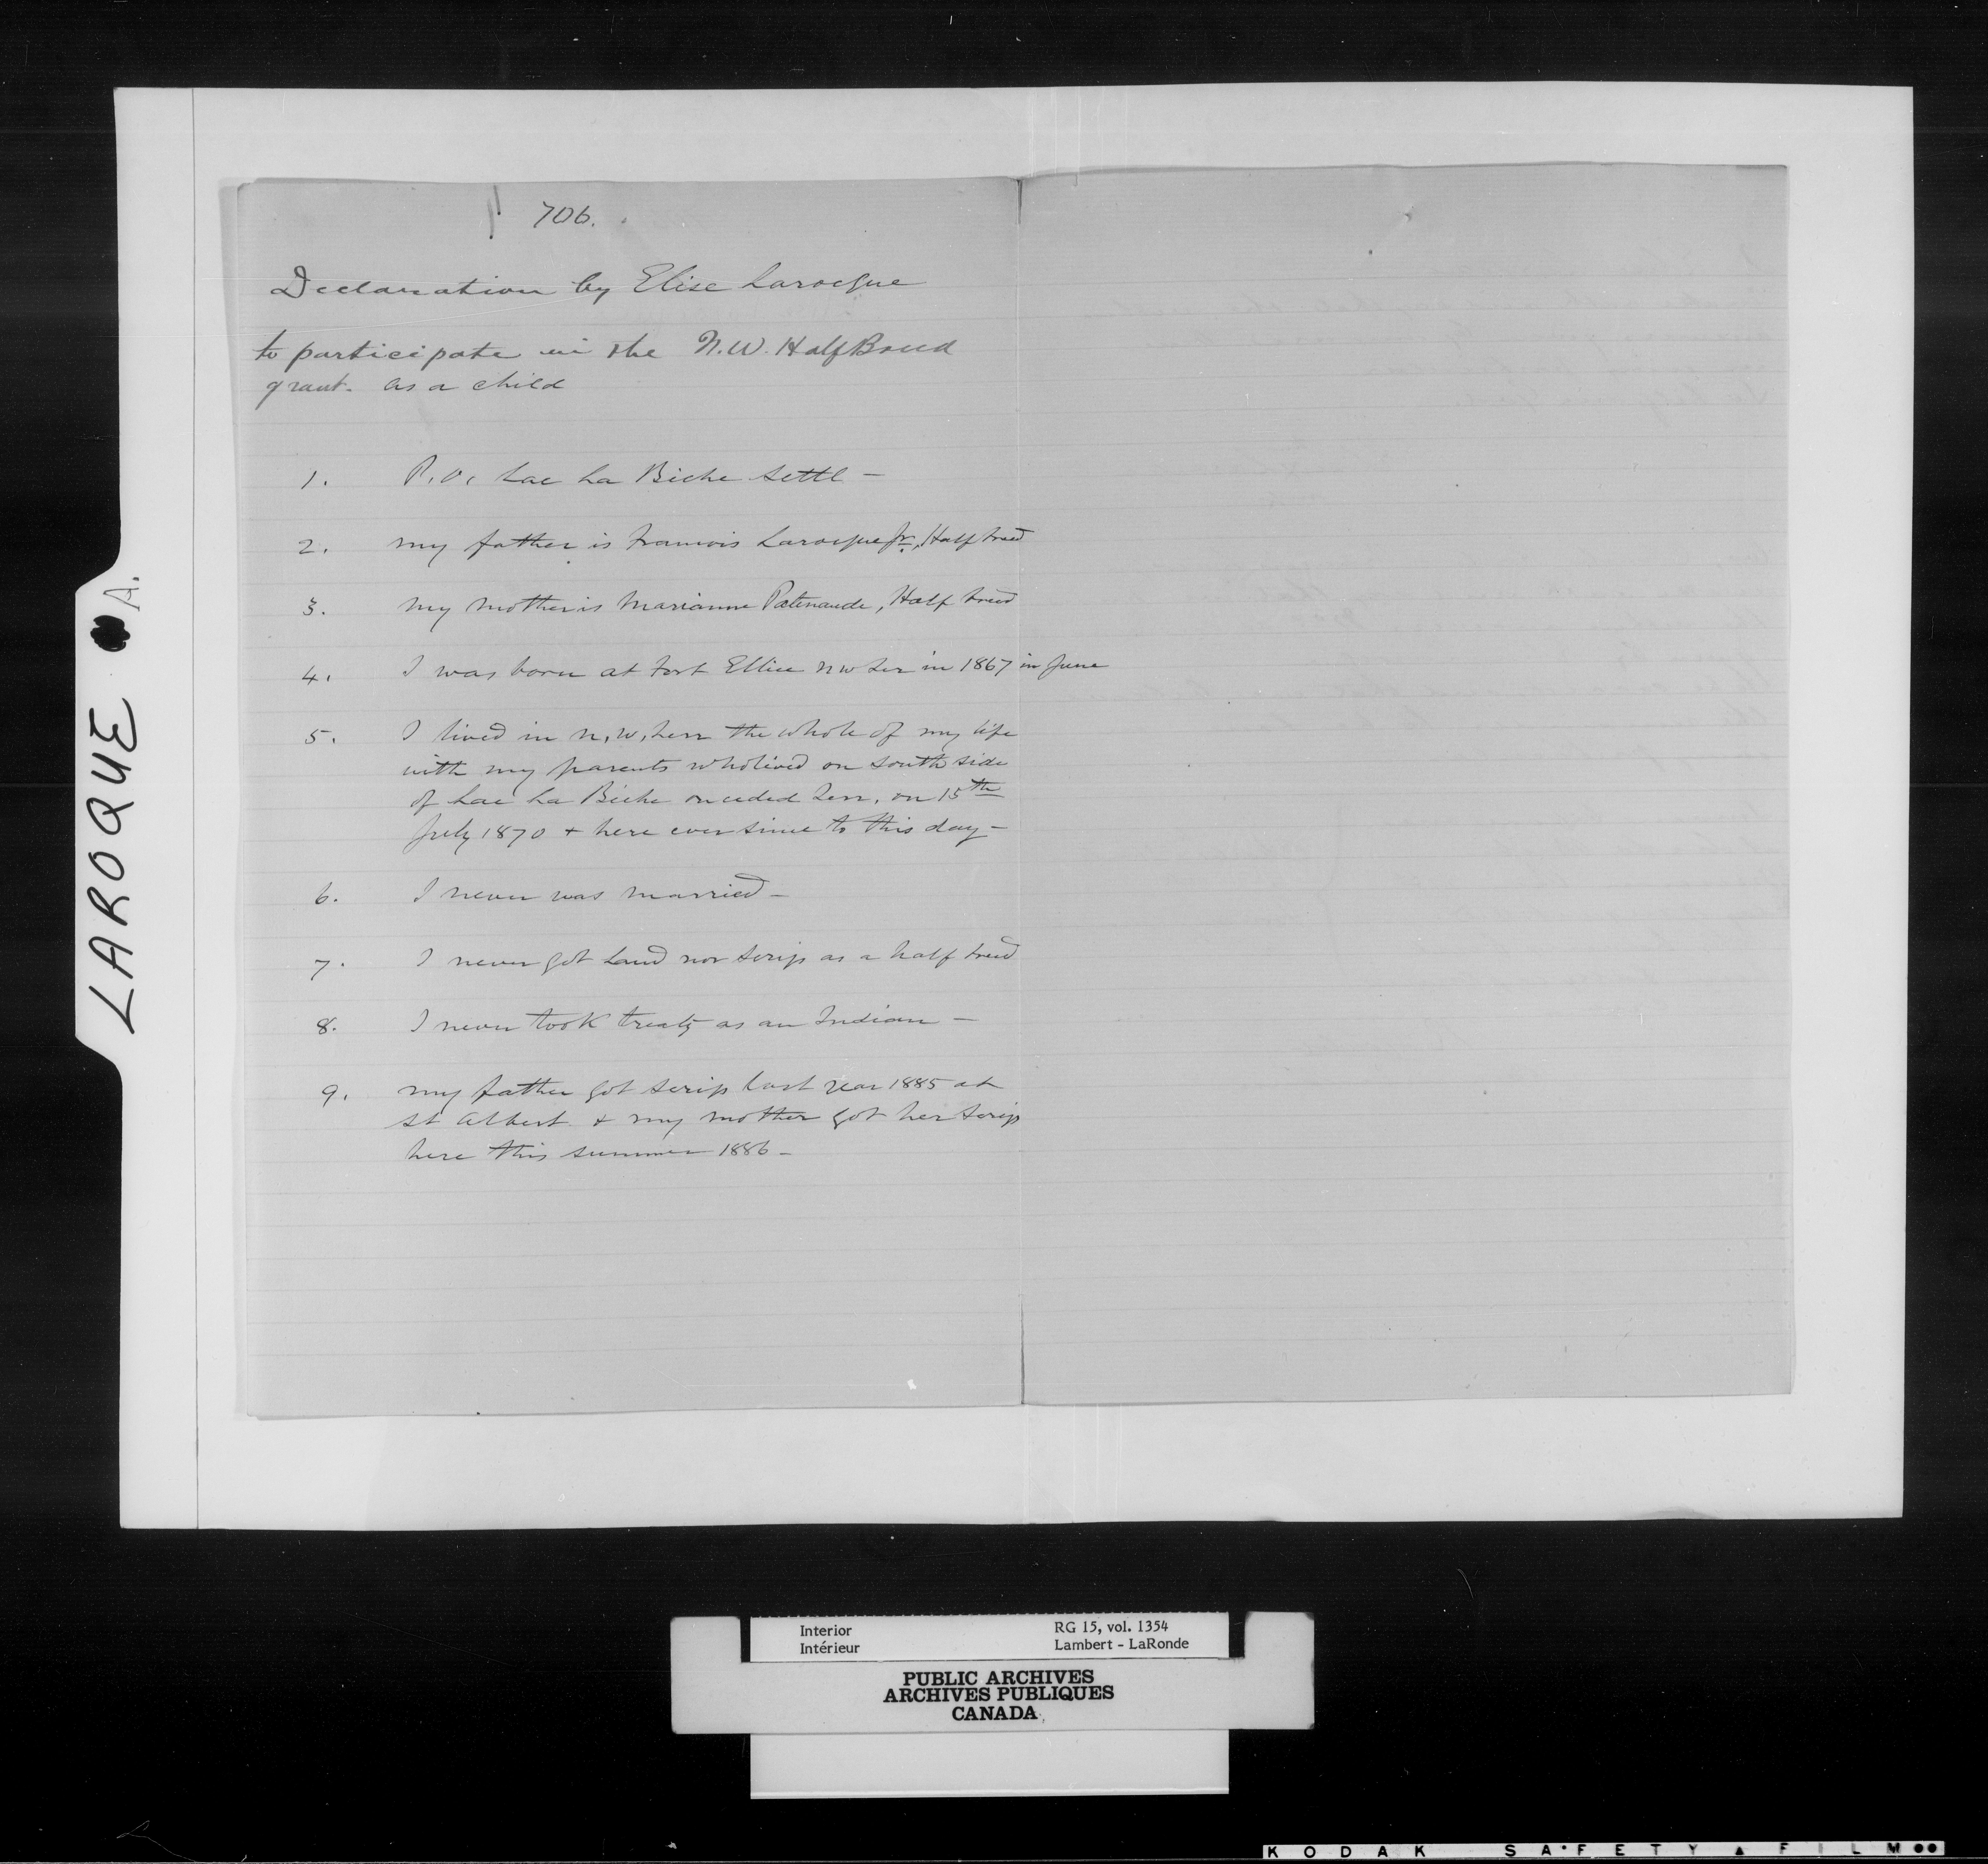 706.
Declaration by Elise Larocque
to participate in the N.W. HalfBreed
grant. as a child
1. P.O. Lac La Biche Settl –
2. my father is Francois Larocque Jr., Half breed
3. my mother is Marianne Patenaude, Half breed
4. I was born at Fort Ellice N W Ter in 1867 in June
5. I lived in N.W. Terr the whole of my life
with my parents who lived on South side
of Lac La Biche on ceded Terr. on 15th
July 1870 + here ever since to this day –
6. I never was married –
7. I never got Land nor Scrip as a half breed
8. I never took treaty as an Indian –
9. my father got scrip last year 1885 at
St Albert & my mother got her Scrip
here this summer 1886 –
LAROQUE A.
Interior RG 15, vol. 1354
Intérieur Lambert - LaRonde
PUBLIC ARCHIVES
ARCHIVES PUBLIQUES
CANADA
KODAK SAFETY FILM